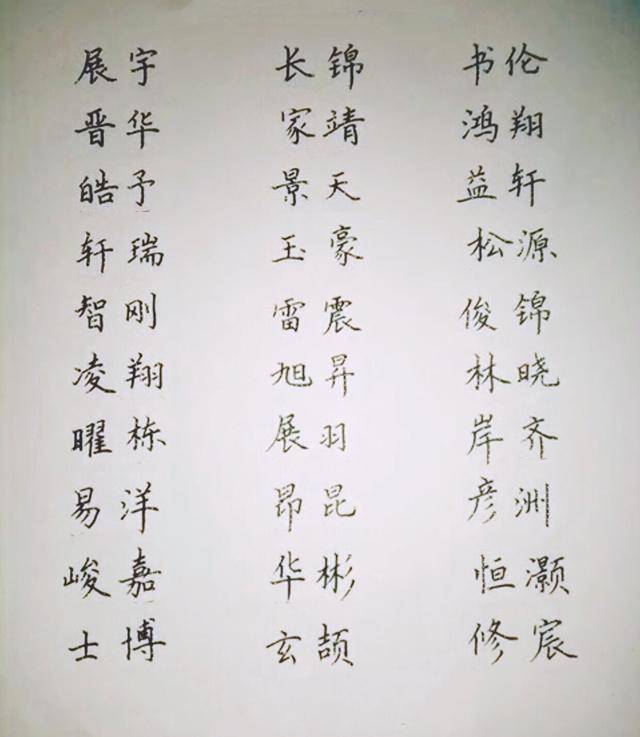 展宇 长锦 书伦
晋华 家靖 鸿翔
皓予 景天 益轩
轩瑞 玉豪 松源
智刚 雷震 俊锦
凌翔 旭昇 林晓
曜栋 展羽 岸齐
易洋 昂昆 彦洲
峻嘉 华彬 恒灏
士博 玄颉 修宸